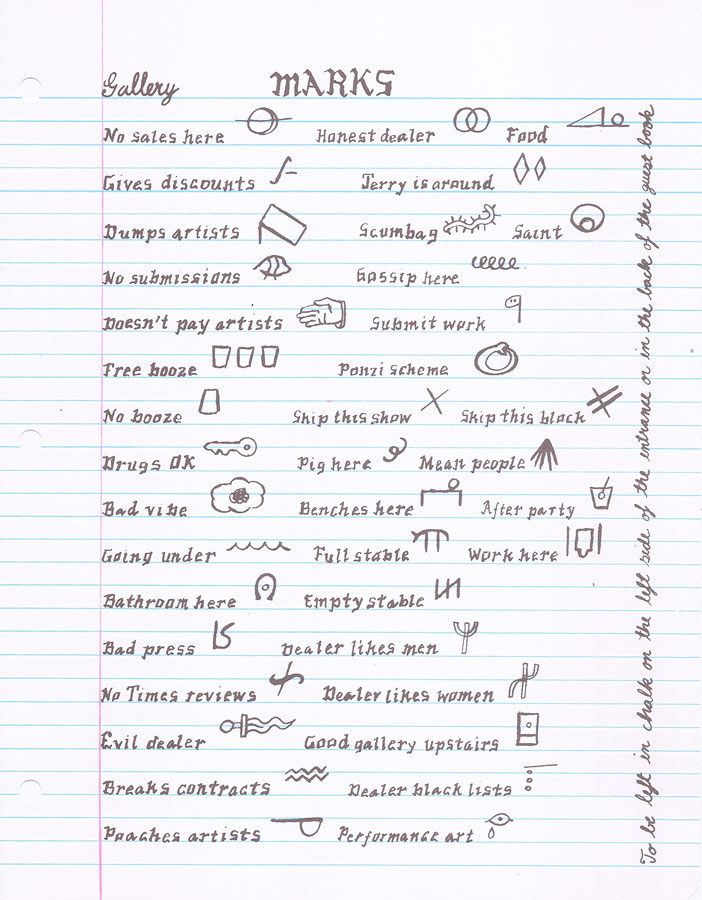 Gallery MARKS
No sales here Honest dealer Food
Gives discounts Jerry is around
Dumps artists Scumbag Saint
No submissions Gossip here
Doesn't pay artists Submit work
Free booze Ponzi scheme
No booze Skip this show Skip this block
Drugs OK Pig here Mean people
Bad vibe Benches here After party
Going under Full stable Work here
Bathroom here Empty stable
Bad press Dealer likes men
No Times reviews Dealer likes women
Evil dealer Good gallery upstairs
Breaks contracts Dealer black lists
Poaches artists Performance art
To be left in chalk on the left side of the entrance or in the back of the guest book